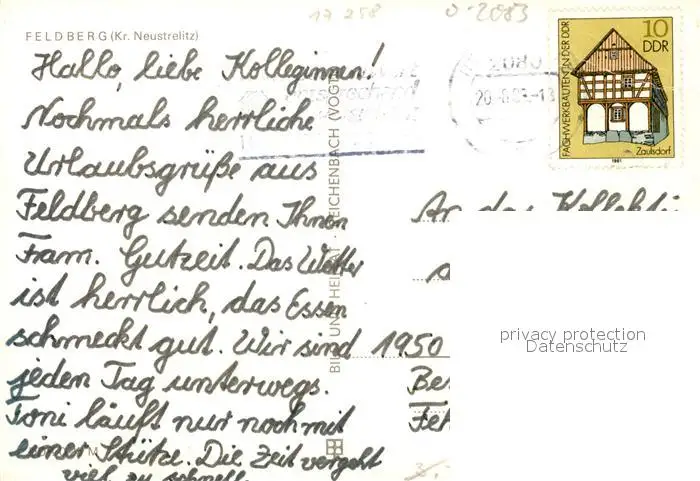 17 258
0-2083
FELDBERG (Kr. Neustrelitz)
Hallo, liebe Kolleginnen!
Nochmals herrliche
Urlaubsgrüße aus
Feldberg senden Ihnen
Fam. Gutzeit. Das Wetter
ist herrlich, das Essen
schmeckt gut. Wir sind
jeden Tag unterwegs.
Toni läuft nur noch mit
einer Stütze. Die Zeit vergeht
viel zu schnell.
BILD UND HEIMAT REICHENBACH (VOGTL
2083
10
DDR
FACHWERKBAUTEN IN DER DDR
Zaulsdorf
1981
An das Kollekti
1950
Be
Feh
privacy protection
Datenschutz